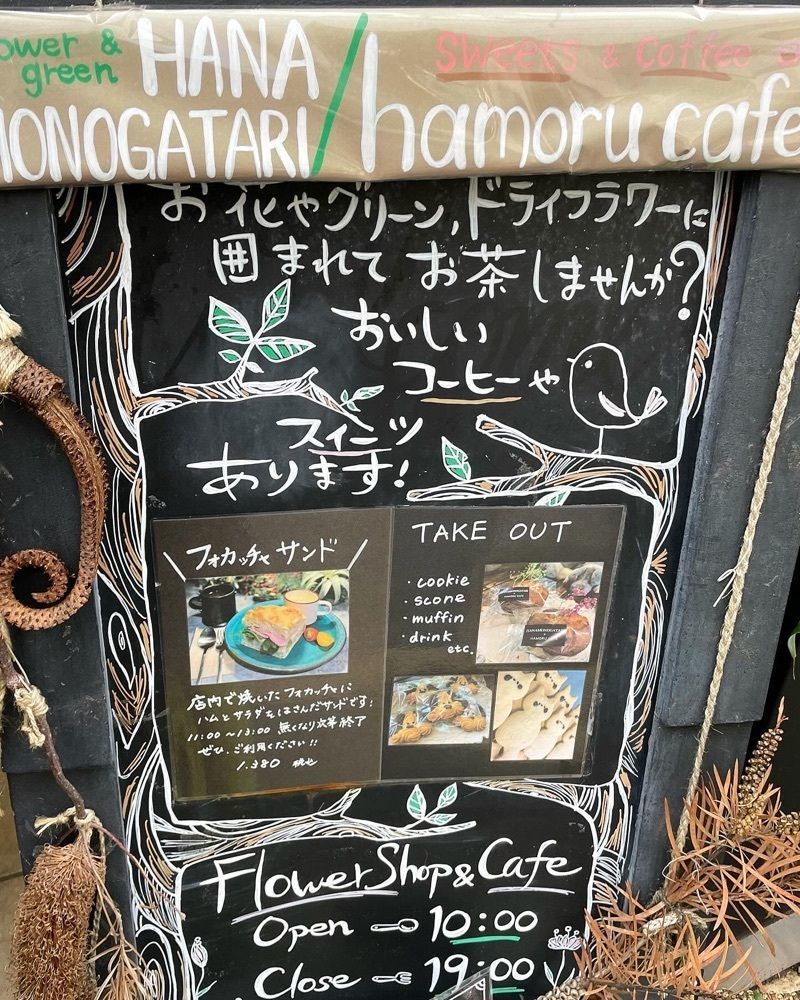 ower &
green
HANA
MONOGATARI
/
Sweets & Coffee
hamoru cafe
お花やグリーン,ドライフラワーに
囲まれて お茶しませんか?
おいしい
コーヒーや
スイーツ
あります!
フォカッチャ サンド
店内で焼いた フォカッチャに
ハムとサラダをはさんだサンドです!
11:00〜13:00 無くなり次第終了
ぜひ、ご利用ください!!
1.380 税込
TAKE OUT
・cookie
・scone
・muffin
・drink
etc.
HANAMONOGATARI
Flower Shop & Cafe
Open 10:00
Close 19:00